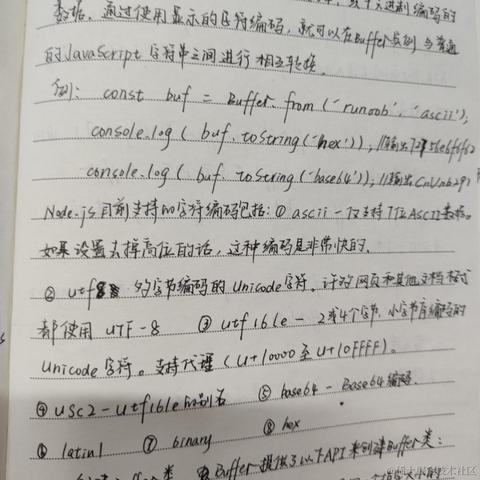 数据。通过使用显示的字符编码,就可以在Buffer实例与普通
的JavaScript 字符串之间进行相互转换。
例: const buf = Buffer.from('runoob', 'ascii');
console.log( buf.toString('hex')); //输出72756e6f6f62
console.log( buf.toString('base64')); //输出CnVub29i
Node.js目前支持的字符编码包括:① ascii - 仅支持7位ASCII数据。
如果设置去掉高位的话,这种编码是非常快的。
② utf8 多字节编码的Unicode字符。许多网页和其他文档格式
都使用 UTF-8 ③ utf16le - 2或4个字节,小字节序编码的
Unicode 字符。支持代理(U+10000至U+10FFFF)。
④ usc2 - utf16le的别名 ⑤ base64 - Base64编码.
⑥ latin1 ⑦ binary ⑧ hex
Buffer类 Buffer提供了以下API来创建Buffer类:
@稀土掘金技术社区